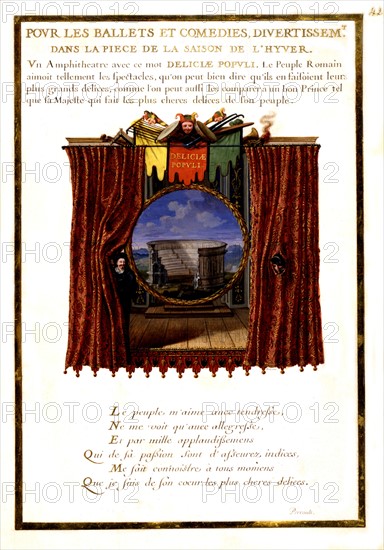 42
POVR LES BALLETS ET COMEDIES, DIVERTISSEM.T
DANS LA PIECE DE LA SAISON DE L'HYVER.
Vn Amphitheatre avec ce mot DELICIÆ POPVLI. Le Peuple Romain
aimoit tellement les spectacles, qu'on peut bien dire qu'ils en faisoient leurs
plus grands delices, comme l'on peut aussi les comparer a un bon Prince tel
que sa Majesté qui fait les plus cheres delices de son peuple.
DELICIÆ
POPVLI
Le peuple m'aime avec tendresse,
Ne me voit qu'avec allegresse,
Et par mille applaudissemens
Qui de sa passion sont d'asseurez indices,
Me fait connoistre à tous momens
Que je fais de son coeur les plus cheres delices.
Perrault.
PHOTO 12